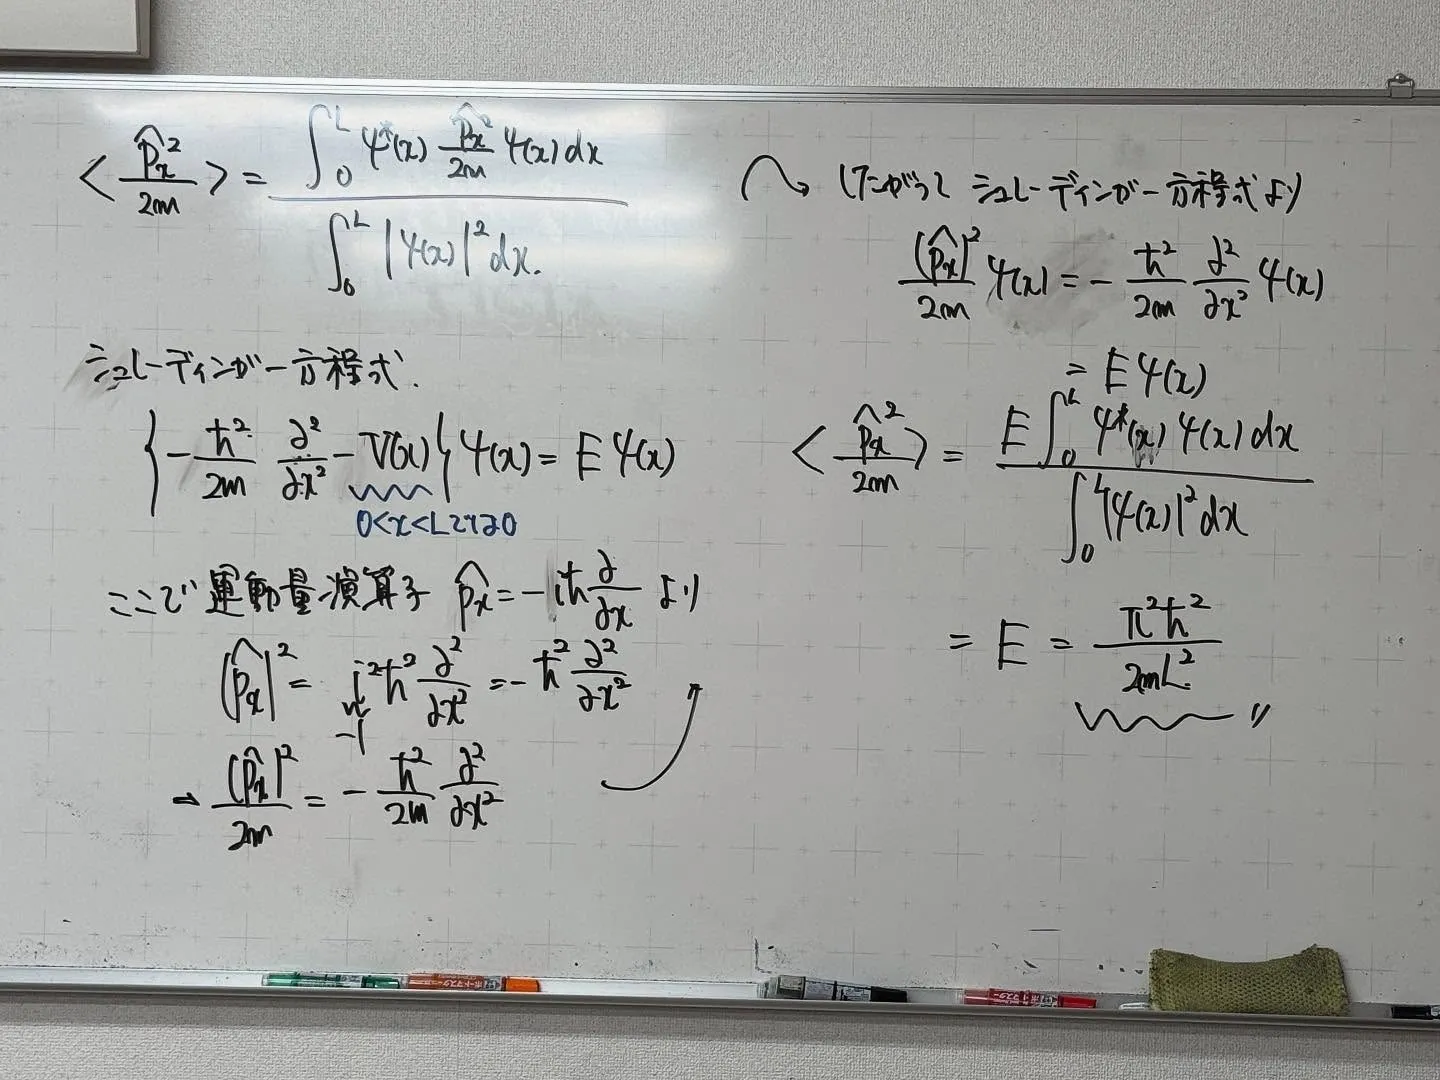 < p̂ₓ² / 2m > = ∫₀ᴸ ψ*(x) p̂ₓ²/2m ψ(x) dx / ∫₀ᴸ |ψ(x)|² dx.
シュレーディンガー方程式.
{ -ħ²/2m ∂²/∂x² - V(x) } ψ(x) = E ψ(x)
0<x<Lで0
ここで 運動量演算子 p̂ₓ = -iħ ∂/∂x より
(p̂ₓ)² = i²ħ² ∂²/∂x² = -ħ² ∂²/∂x²
-1
→ (p̂ₓ)²/2m = -ħ²/2m ∂²/∂x²
したがって シュレーディンガー方程式より
(p̂ₓ)²/2m ψ(x) = -ħ²/2m ∂²/∂x² ψ(x)
= E ψ(x)
< p̂ₓ²/2m > = E ∫₀ᴸ ψ*(x) ψ(x) dx / ∫₀ᴸ |ψ(x)|² dx
= E = π²ħ²/2mL² 〃
ボードマスター